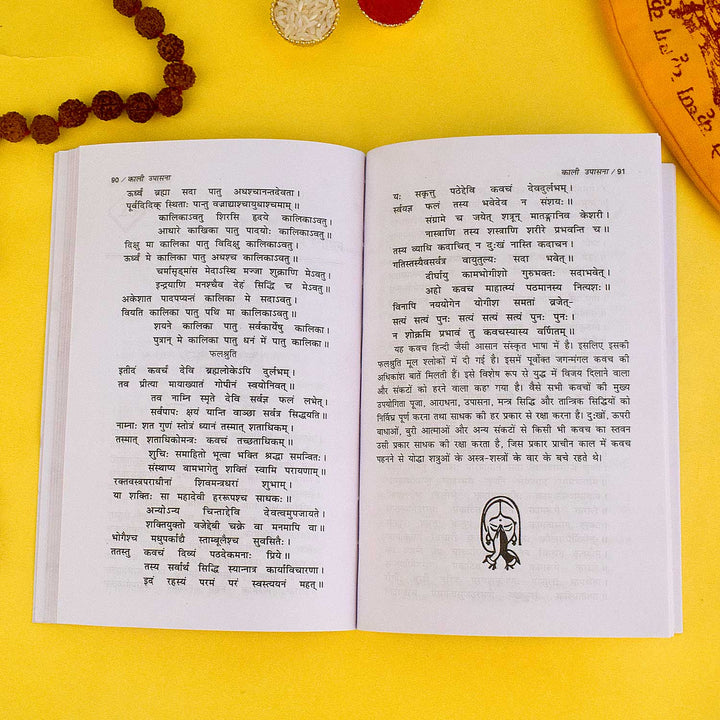 90 / काली उपासना
ऊर्ध्व ब्रह्मा सदा पातु अधश्चानन्तदेवता।
पूर्वदिदिक् स्थिताः पान्तु वज्राद्याश्चायुधाश्चमाम्॥
कालिकाऽवतु शिरसि हृदये कालिकाऽवतु।
आधारे काखिका पातु पादयोः कालिकाऽवतु॥
दिक्षु मा कालिका पातु विदिक्षु कालिकाऽवतु।
ऊर्ध्व मे कालिका पातु अधश्च कालिकाऽवतु॥
चर्मासृद्मांस मेदाऽस्थि मज्जा शुक्राणि मेऽवतु।
इन्द्रयाणि मनश्चैव देहं सिद्धिं च मेऽवतु॥
अकेशात पादपय्यन्तं कालिका मे सदाऽवतु।
वियति कालिका पातु पथि मा कालिकाऽवतु॥
शयने कालिका पातु सर्वकार्येषु कालिका।
पुत्रान् मे कालिका पातु धनं में पातु कालिका॥
फलश्रुति
इतीदं कवचं देवि ब्रह्मलोकेऽपि दुर्लभम्।
तव प्रीत्या मायाख्यातं गोपीनं स्वयोनिवत्॥
तव नाम्नि स्मृते देवि सर्वज्ञ फलं लभेत्।
सर्वपापः क्षयं यान्ति वाञ्छा सर्वत्र सिद्धयति॥
नाम्नाः शत गुणं स्तोत्रं ध्यानं तस्मात् शताधिकम्।
तस्मात् शताधिकोमन्त्रः कवचं तच्छताधिकम्॥
शुचिः समाहितो भूत्वा भक्ति श्रद्धा समन्वितः।
संस्थाप्य वामभागेतु शक्तिं स्वामि परायणाम्॥
रक्तवस्त्रपराधीनां शिवमन्त्रधरां शुभाम्।
या शक्तिः सा महादेवी हररूपश्च साधकः॥
अन्योऽन्य चिन्ताद्देवि देवत्वमुपजायते।
शक्तियुक्तो वजेद्देबी चक्रे वा मनमापि वा॥
भोगैश्च मधुपर्काद्यै स्ताम्बूलैश्च सुवसितैः।
ततस्तु कवचं दिव्यं पठदेकमनाः प्रिये॥
तस्य सर्वार्थ सिद्धि स्यान्नात्र कार्याविचारणा।
इदं रहस्यं परमं परं स्वस्त्ययनं महत्॥
काली उपासना / 91
यः सकृत्तु पठेद्देवि कवचं देवदुर्लभम्।
सर्वयज्ञ फलं तस्य भवेदेव न संशयः॥
संग्रामे च जयेत् शत्रून् मातङ्गानिव केशरी।
नास्त्राणि तस्य शस्त्राणि शरीरे प्रभवन्ति च॥
तस्य व्याधि कदाचित् न दुःखं नास्ति कदाचन।
गतिस्तस्यैवसर्वत्र वायुतुल्यः सदा भवेत्॥
दीर्घायु कामभोगीशो गुरुभक्तः सदाभवेत्।
अहो कवच माहात्म्यं पठमानस्य नित्यशः॥
विनापि नययोगेन योगीश समतां व्रजेत्-
सत्यं सत्यं पुनः सत्यं सत्यं सत्यं पुनः पुनः।
न शोक्रमि प्रभावं तु कवचस्यास्य वर्णितम्॥
यह कवच हिन्दी जैसी आसान संस्कृत भाषा में है। इसलिए इसकी
फलश्रुति मूल श्लोकों में दी गई है। इसमें पूर्वोक्त जगन्मंगल कवच की
अधिकांश बातें मिलती हैं। इसे विशेष रूप से युद्ध में विजय दिलाने वाला
और संकटों को हरने वाला कहा गया है। वैसे सभी कवचों की मुख्य
उपयोगिता पूजा, आराधना, उपासना, मन्त्र सिद्धि और तान्त्रिक सिद्धियों को
निर्विघ्न पूर्ण करना तथा साधक को हर प्रकार से रक्षा करना है। दुःखों, ऊपरी
बाधाओं, बुरी आत्माओं और अन्य संकटों से किसी भी कवच का स्तवन
उसी प्रकार साधक को रक्षा करता है, जिस प्रकार प्राचीन काल में कवच
पहनने से योद्धा शत्रुओं के अस्त्र-शस्त्रों के वार के बचे रहते थे।